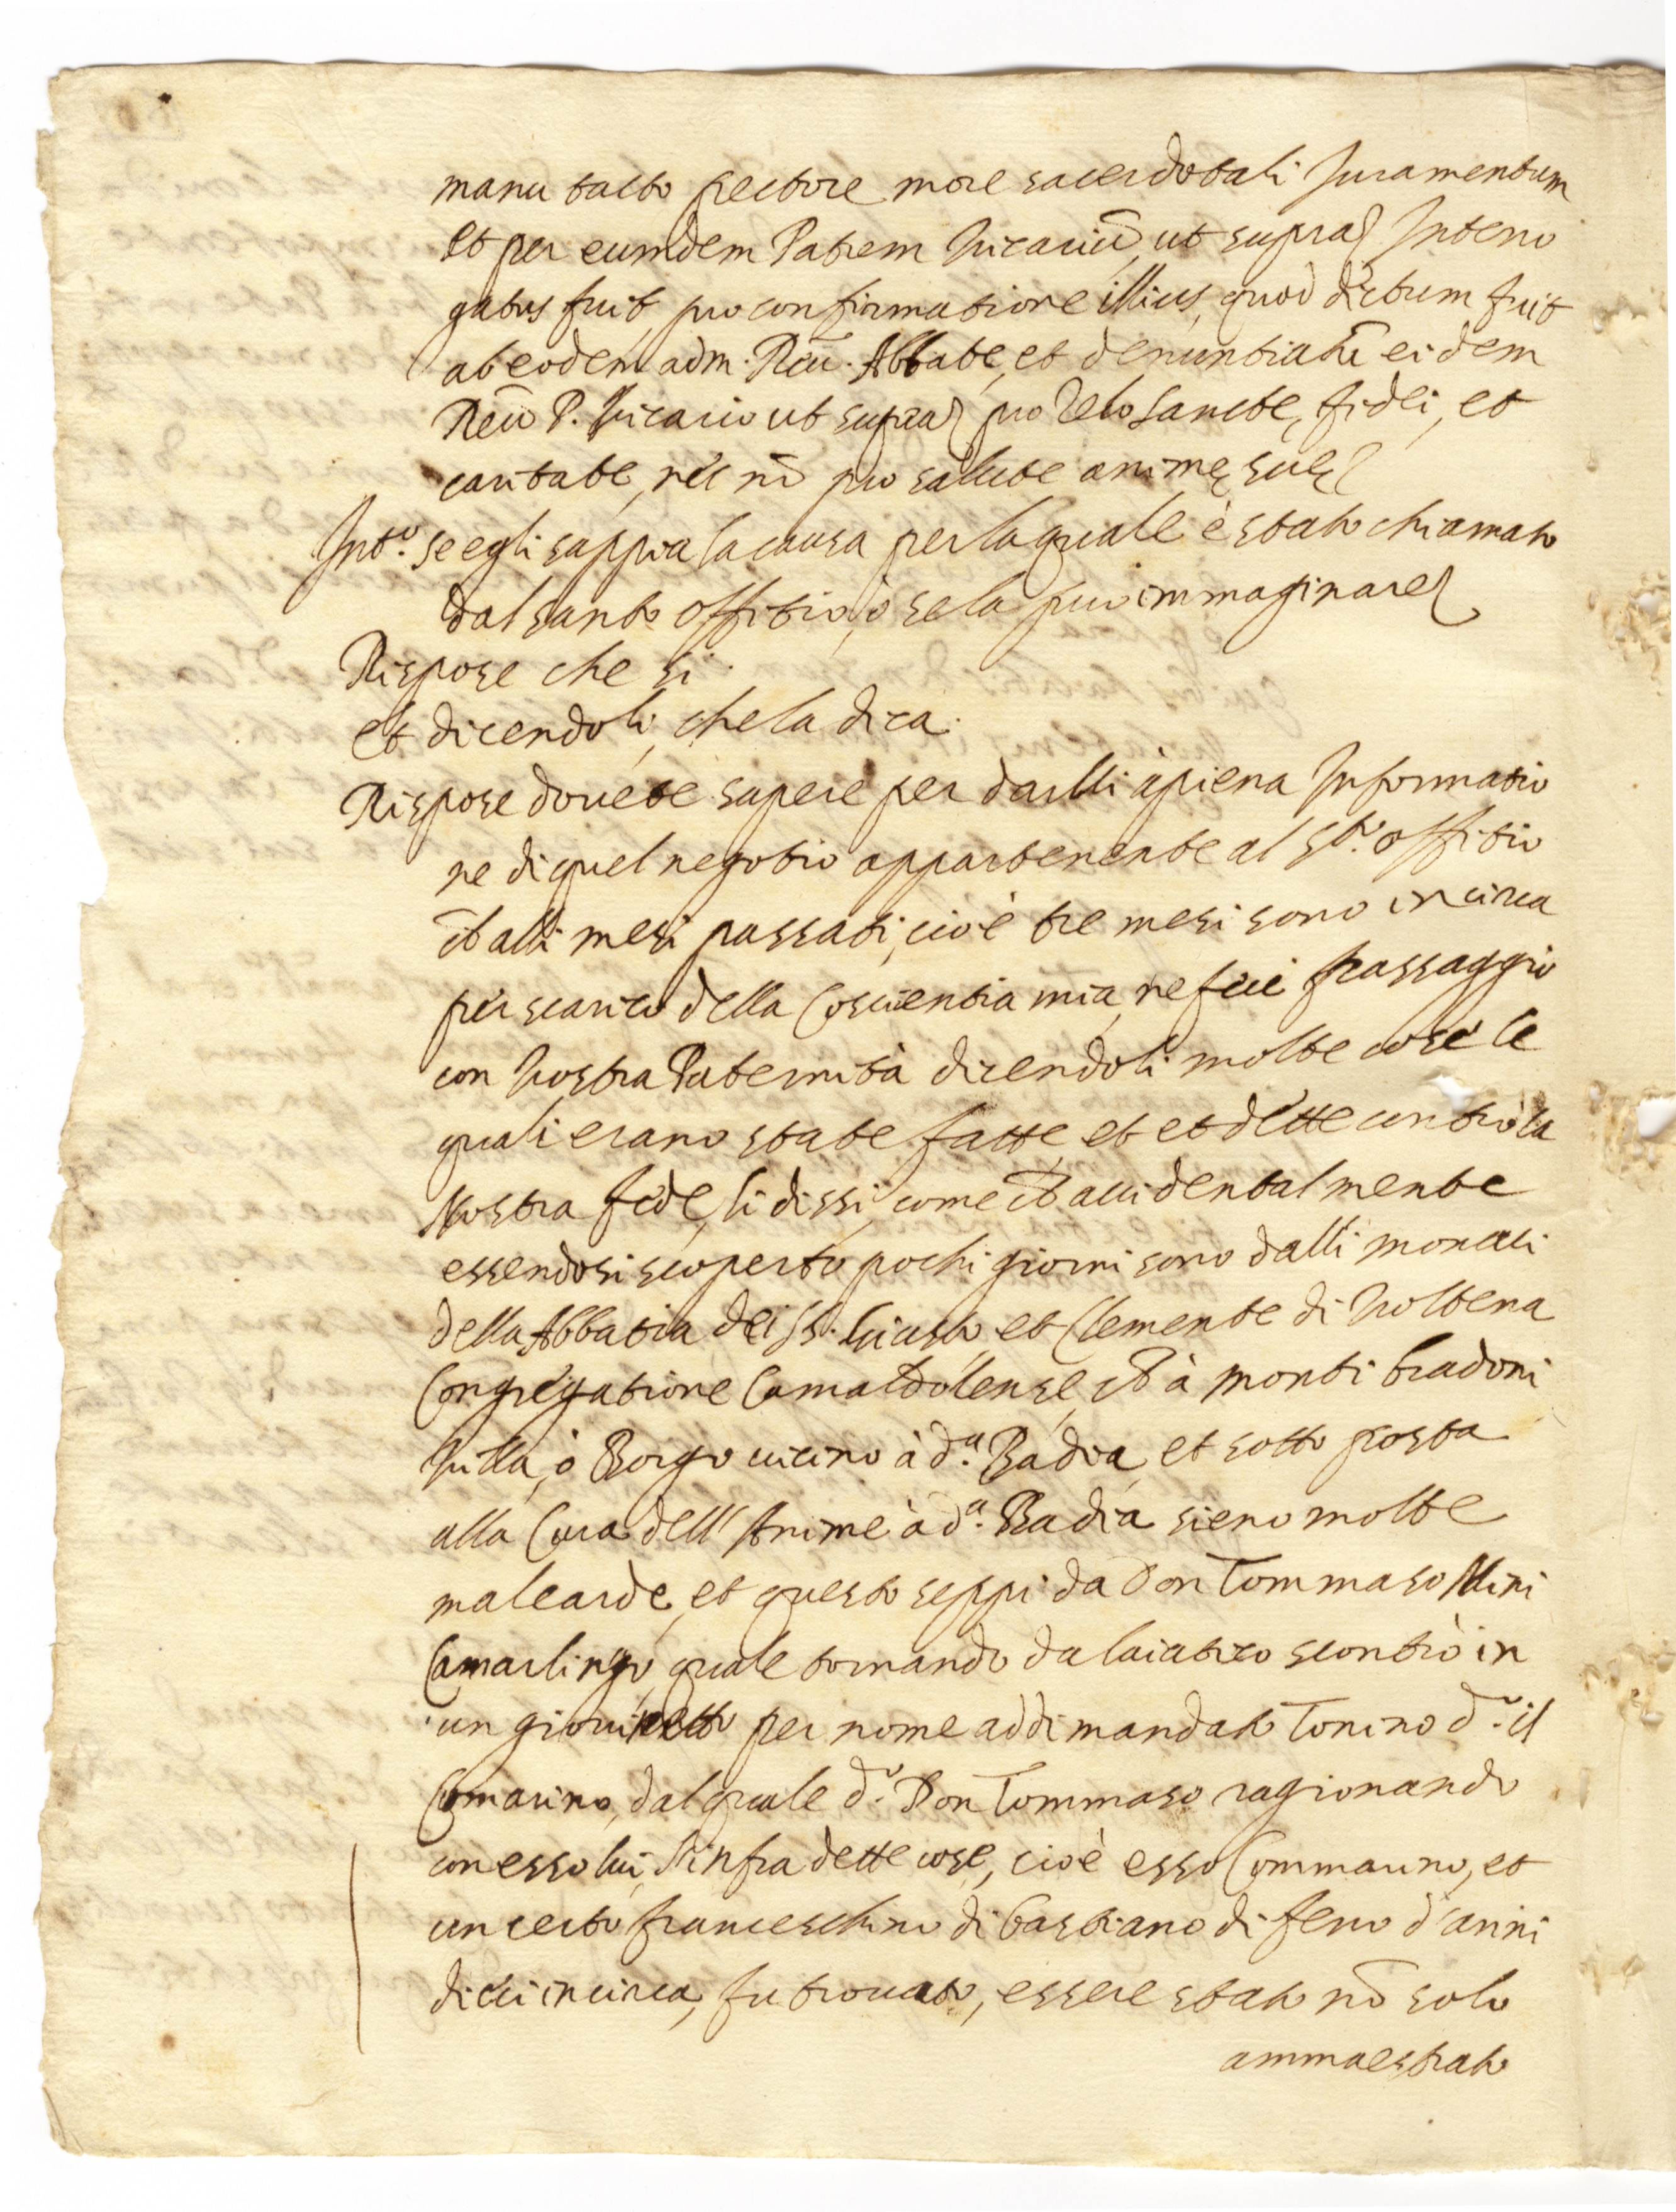 manu tacto pectore more sacerdotali Iuramentum
et per eumdem Patrem Vicariũ, ut supra Interro
gatus fuit, pro confirmatione illius, quod dictum fuit
ab eodem adm. Reũ. Abbate, et denuntiatũ eidem
Reũ P. Vicario ut supra pro zelo sancte, fidei, et
caritate, nec nõ pro salute animę suę
Int.º se egli sappia la causa per la quale è stato chiamato
dal santo offitio, ò se la può immaginare
Rispose che si.
et dicendoli, che la dica.
Rispose dovete sapere per darlli àpiena Informatio
ne di quel negotio appartenente al S.to offitio
ch alli mesi passati, cioè tre mesi sono in circa
per scarico della Coscientia mia, ne feci passaggio
con Vostra Paternità dicendoli molte cose le
quali erano state fatte, et et dette contro la
Nostra fede, li dissi, come ch accidentalmente
essendosi scoperto pochi giorni sono dalli monaci
della Abbatia dei SS. Giusto, et Clemente di Volterra
Congregatione Camaldolense, ch à monti bradoni
Villa, ò Borgo vicino à d.ª Badia, et sotto posta
alla Cura dell'Anime à d.ª Badia sieno molte
maliarde, et questo seppi da Don Tommaso Mini
Camarlingo, quale tornando da laiatico scontrò in
un giovinetto per nome addimandato Tonino d.º il
Comarino, dal quale d.º Don Tommaso ragionando
con esso lui, l'infra dette cose, cioè esso Commarino, et
un certo franceschino di bastiano di ferro d'anni
dieci incirca, fu trovato, essere stato nõ solo
ammaestrato